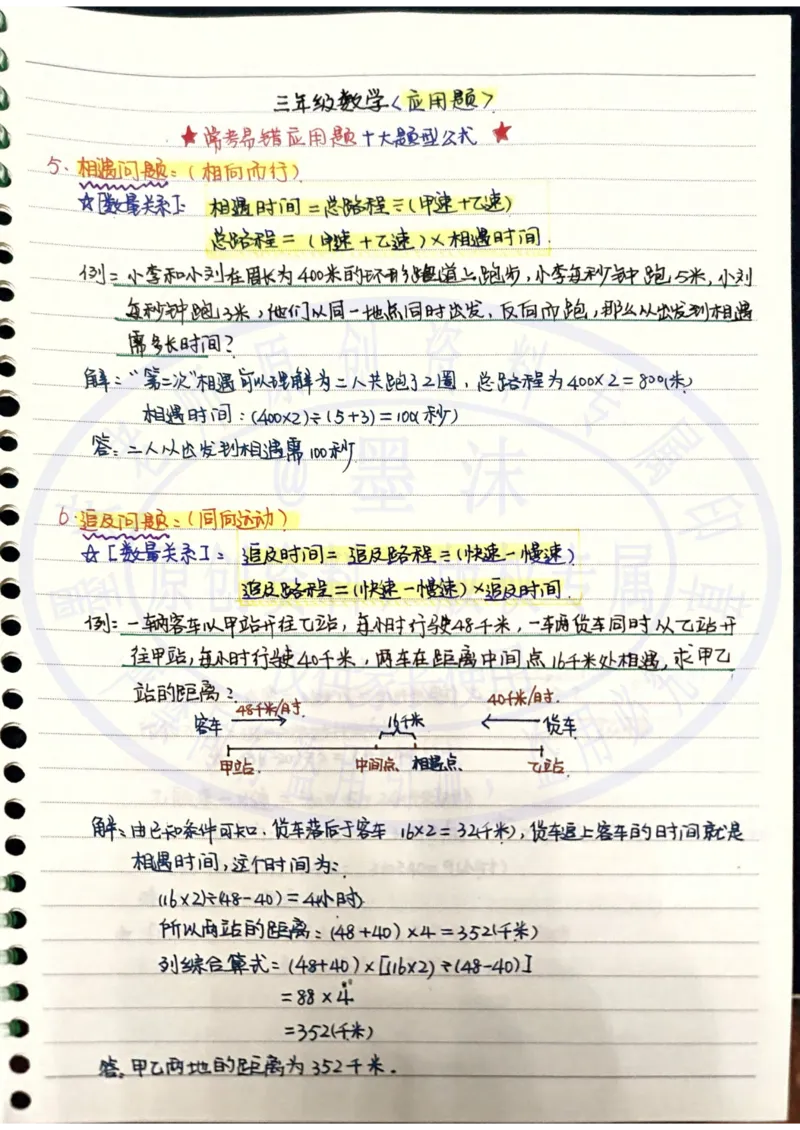 三年级数学<应用题>
★常考易错应用题十大题型公式★
5.相遇问题:(相向而行)
☆[数量关系]: 相遇时间=总路程÷(甲速+乙速)
总路程=(甲速+乙速)×相遇时间.
例:小李和小刘在周长为400米的环形跑道上跑步,小李每秒钟跑5米,小刘
每秒钟跑3米,他们从同一地点同时出发,反向而跑,那么从出发到相遇
需多长时间?
解:"第二次"相遇可以理解为二人共跑了2圈,总路程为400×2=800(米)
相遇时间:(400×2)÷(5+3)=100(秒)
答:二人从出发到相遇需100秒
6.追及问题:(同向运动)
☆[数量关系]: 追及时间=追及路程÷(快速-慢速)
追及路程=(快速-慢速)×追及时间.
例:一辆客车以甲站开往乙站,每小时行驶48千米,一车两货车同时从乙站开
往甲站,每小时行驶40千米,两车在距离中间点16千米处相遇,求甲乙
站的距离?
48千米/时. 16千米 40千米/时.
客车 货车
甲站. 中间点 相遇点. 乙站.
解:由已知条件可知.货车落后于客车 16×2=32(千米),货车追上客车的时间就是
相遇时间,这个时间为:
(16×2)÷(48-40)=4(小时)
所以两站的距离:(48+40)×4=352(千米)
列综合算式=(48+40)×[(16×2)÷(48-40)]
=88×4
=352(千米)
答.甲乙两地的距离为352千米.
原创资料专属印章
@墨沫
原创 专属